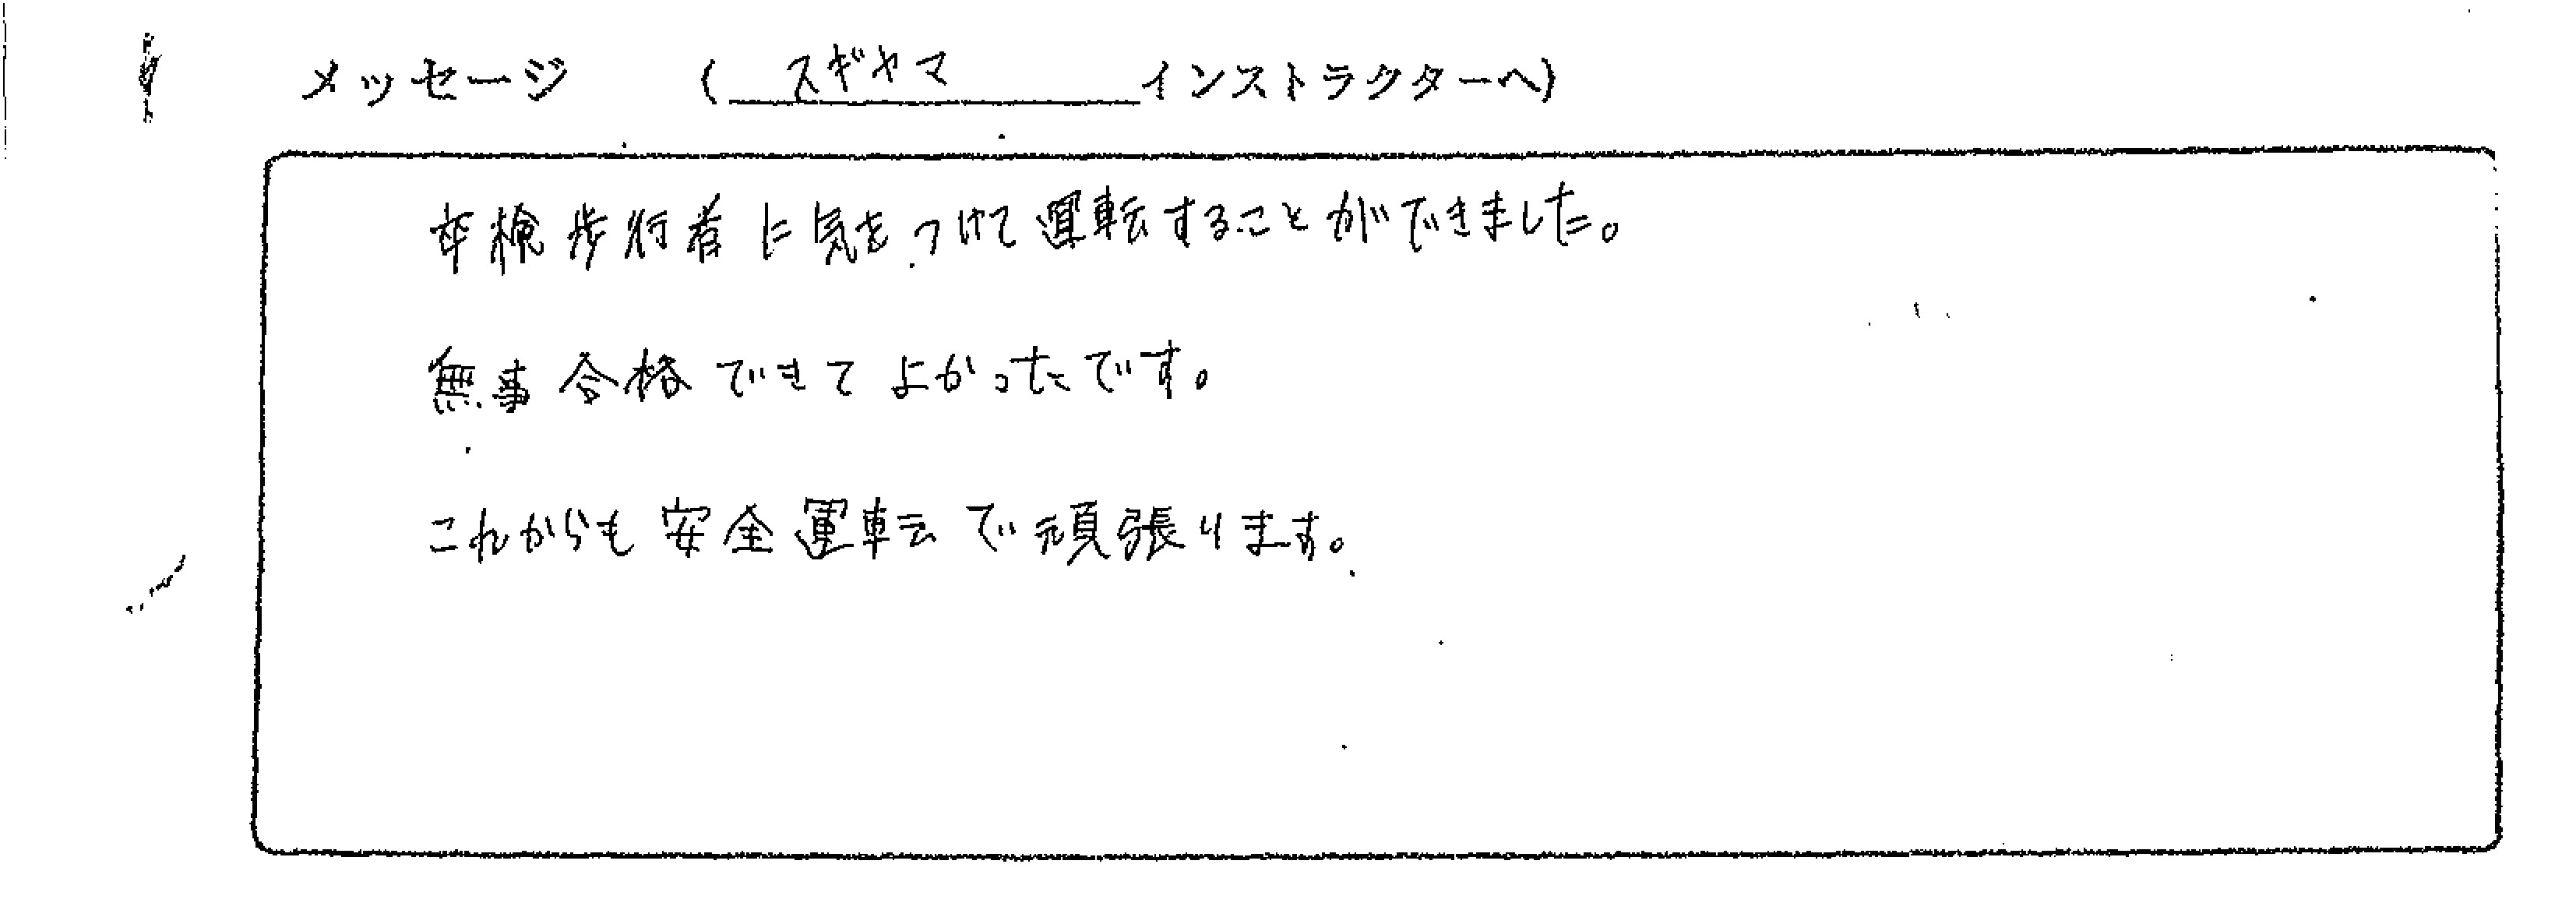 メッセージ （ スギヤマ インストラクターへ）
卒検歩行者に気をつけて運転することができました。
無事合格できてよかったです。
これからも安全運転で頑張ります。